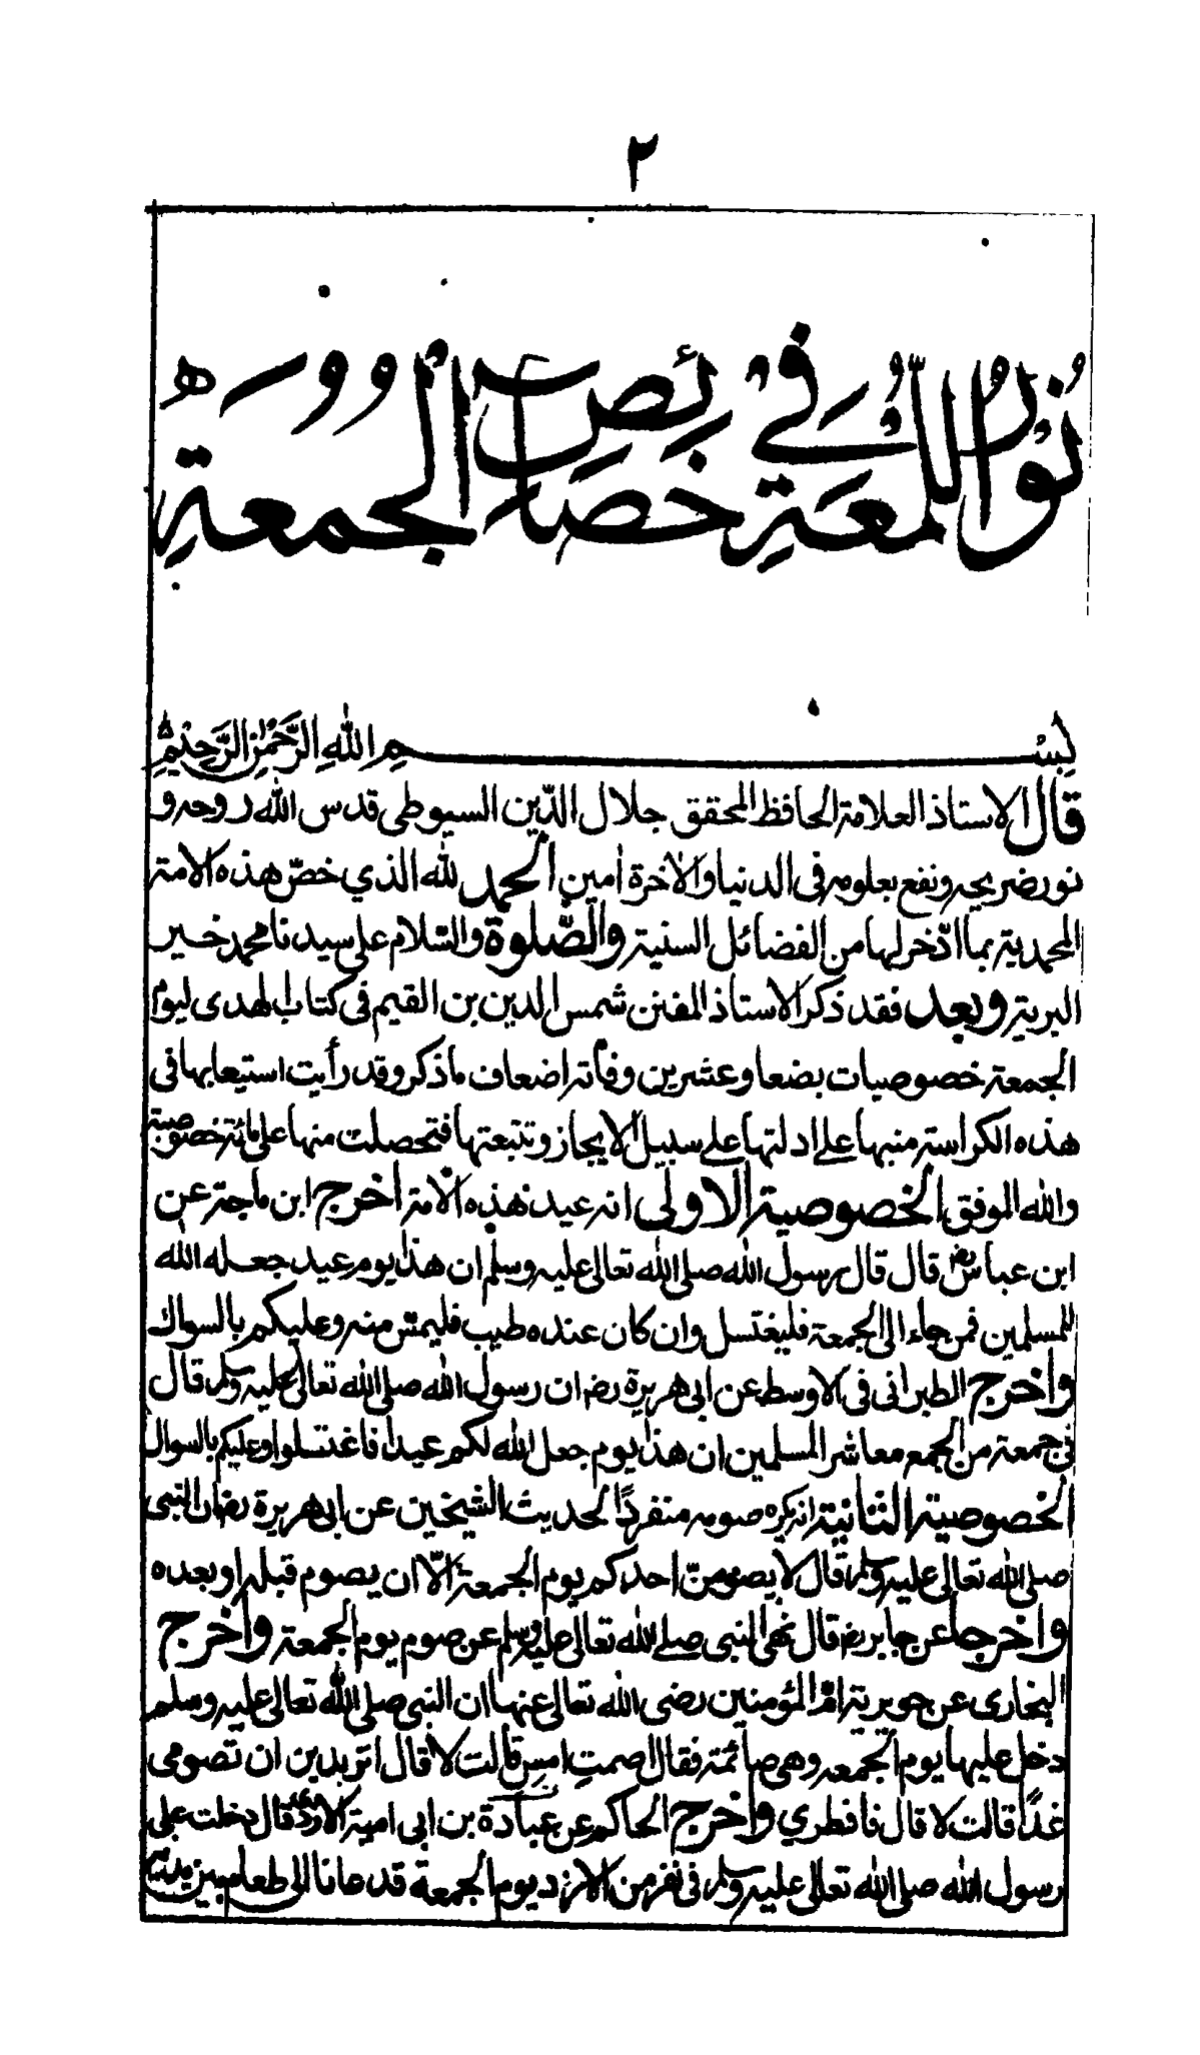 ٢
نُوْرُ اللُّمْعَةِ فِيْ خَصَائِصِ الْجُمُعَةِ
بِسْمِ اللهِ الرَّحْمٰنِ الرَّحِيْمِ
قال الاستاذ العلامة الحافظ المحقق جلال الدّين السيوطى قدس الله روحه و
نور ضريحه ونفع بعلومه فى الدنيا والاٰخرة اٰمين الحمد لله الذي خصّ هذه الامة
المحمدية بما ادّخر لها من الفضائل السنية والصّلوة والسّلام على سيدنا محمد خير
البرية وبعد فقد ذكر الاستاذ المفنن شمس الدين بن القيم فى كتاب الهدى ليوم
الجمعة خصوصيات بضعا وعشرين وفاته اضعاف ما ذكر وقد رأيت استيعابها فى
هذه الكراسة منبها على ادلتها على سبيل الايجاز وتتبعتها فتحصلت منها على مائة خصوصية
والله الموفق الخصوصية الاولى انه عيد هذه الامة اخرج ابن ماجة عن
ابن عباس رض قال قال رسول الله صلى الله تعالى عليه وسلم ان هذا يوم عيد جعله الله
للمسلمين فمن جاء الى الجمعة فليغتسل وان كان عنده طيب فليمس منه وعليكم بالسواك
واخرج الطبرانى فى الاوسط عن ابى هريرة رض ان رسول الله صلى الله تعالى عليه وسلم قال
فى جمعة من الجمع معاشر المسلمين ان هذا يوم جعل الله لكم عيدا فاغتسلوا وعليكم بالسواك
الخصوصية الثانية انه يكره صومه منفردًا لحديث الشيخين عن ابى هريرة رض ان النبى
صلى الله تعالى عليه وسلم قال لا يصومنّ احدكم يوم الجمعة الّا ان يصوم قبله او بعده
واخرجا عن جابر رض قال نهى النبى صلے الله تعالى عليه وسلم عن صوم يوم الجمعة واخرج
البخارى عن جويرية امّ المؤمنين رضى الله تعالى عنها ان النبى صلى الله تعالى عليه وسلم
دخل عليها يوم الجمعه وهى صائمة فقال اصمتِ امسِ قالت لا قال اتريدين ان تصومى
غدًا قالت لا قال فافطري واخرج الحاكم عن عبادة بن ابى امية الازدى قال دخلت على
رسول الله صلى الله تعالى عليه وسلم فى نفر من الازد يوم الجمعة قد عانا الى طعام بين يديه